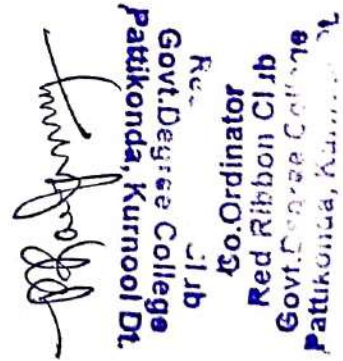 Co.Ordinator
Red Ribbon Club
Govt.Degree College
Pattikonda,
Club
Govt.Degree College
Pattikonda, Kurnool Dt.